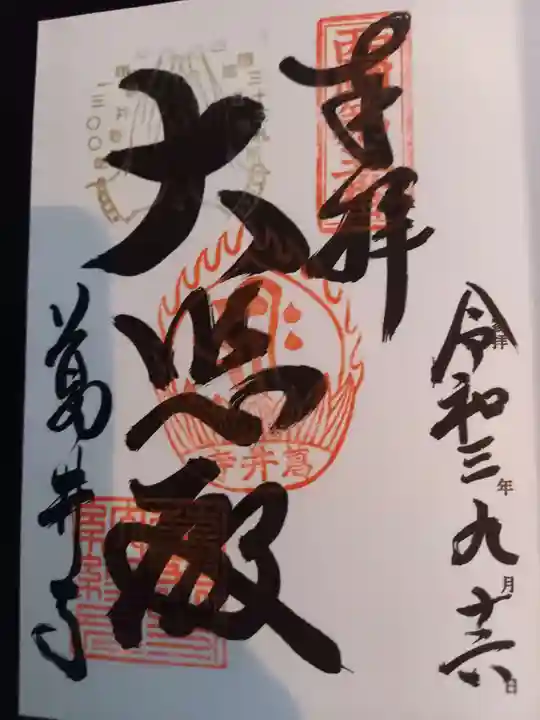 令和三年九月十六日
西国第五番
奉拝
大悲殿
葛井寺
葛井寺